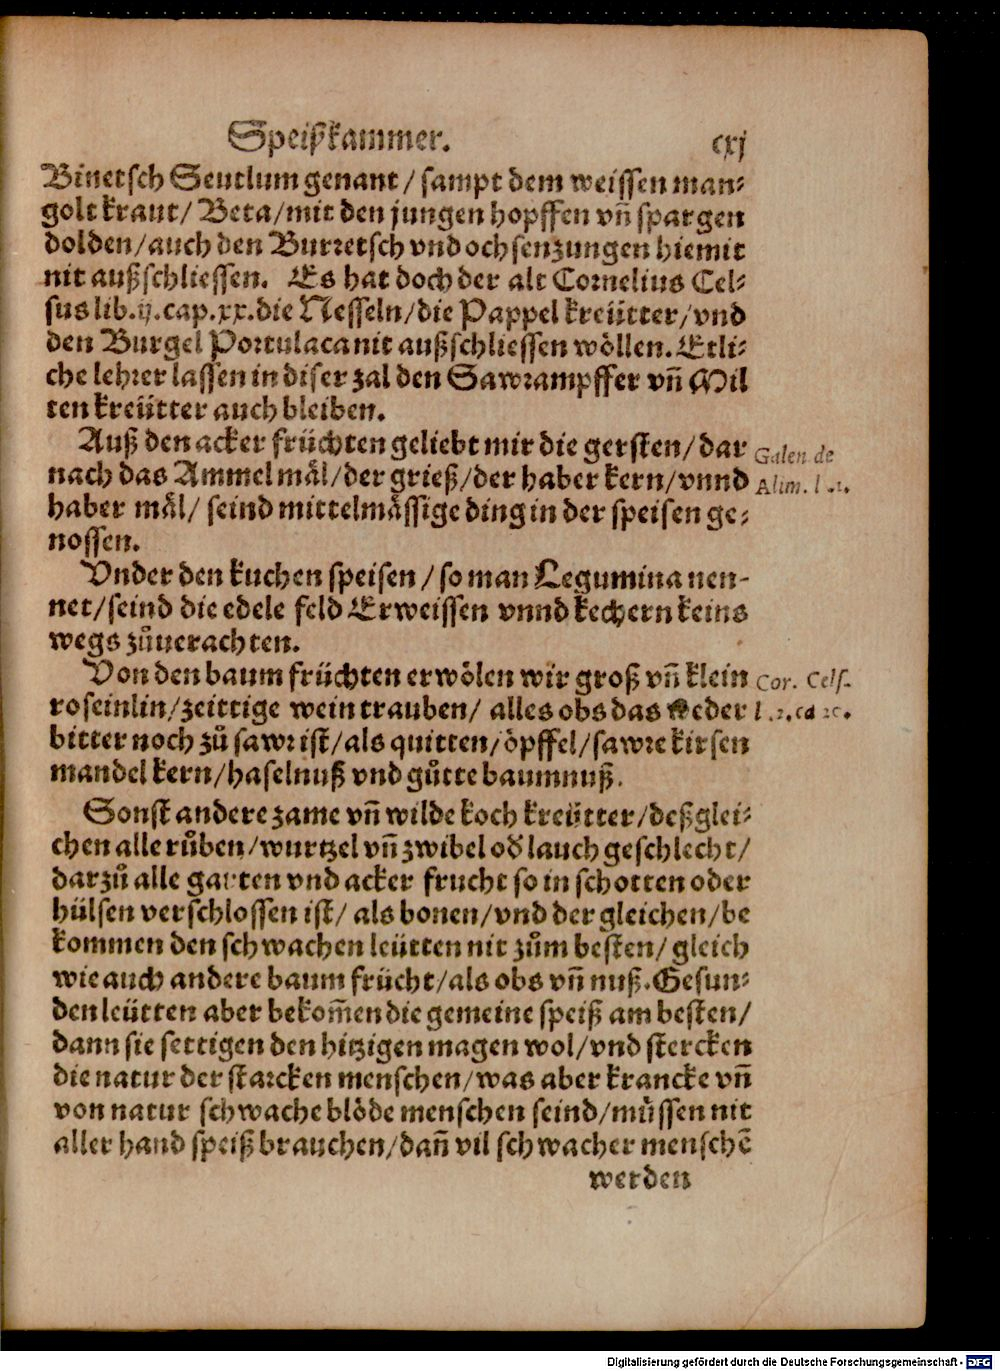 Speiſzkammer. cxj
Binetsch Seutlum genant / sampt dem weissen man⸗
golt kraut / Beta / mit den jungen hopffen vñ spargen
dolden / auch den Burretsch vnd ochsenzungen hiemit
nit außschliessen. Es hat doch der alt Cornelius Cel⸗
sus lib.ij.cap.xx.die Nesseln / die Pappel kreütter / vnd
den Burgel Portulaca nit außschliessen wöllen. Etli⸗
che lehrer lassen in diser zal den Sawrampffer vñ Mil
ten kreütter auch bleiben.
Auß den acker früchten geliebt mir die gersten / dar
nach das Ammel mäl / der grieß / der haber kern / vnnd
haber mäl / seind mittelmässige ding in der speisen ge⸗
nossen.
Galen de
Alim. l .1.
Vnder den kuchen speisen / so man Legumina nen-
net / seind die edele feld Erweissen vnnd kechern keins
wegs zůuerachten.
Von den baum früchten erwölen wir groß vñ klein
roseinlin / zeittige wein trauben / alles obs das weder
bitter noch zů sawr ist / als quitten / öpffel / sawre kirsen
mandel kern / haselnuß vnd gůtte baumnuß.
Cor. Cels.
l .2. ca 2c.
Sonst andere zame vñ wilde koch kreütter / deßglei⸗
chen alle růben / wurtzel vñ zwibel od̕ lauch geschlecht /
darzů alle garten vnd acker frucht so in schotten oder
hülsen verschlossen ist / als bonen / vnd der gleichen / be
kommen den schwachen leütten nit zům besten / gleich
wie auch andere baum frücht / als obs vñ nuß. Gesun⸗
den leütten aber bekom̃en die gemeine speiß am besten /
dann sie settigen den hitzigen magen wol / vnd stercken
die natur der starcken menschen / was aber krancke vñ
von natur schwache blöde menschen seind / müssen nit
aller hand speiß brauchen / dañ vil schwacher menschẽ
werden
Digitalisierung gefördert durch die Deutsche Forschungsgemeinschaft - DFG